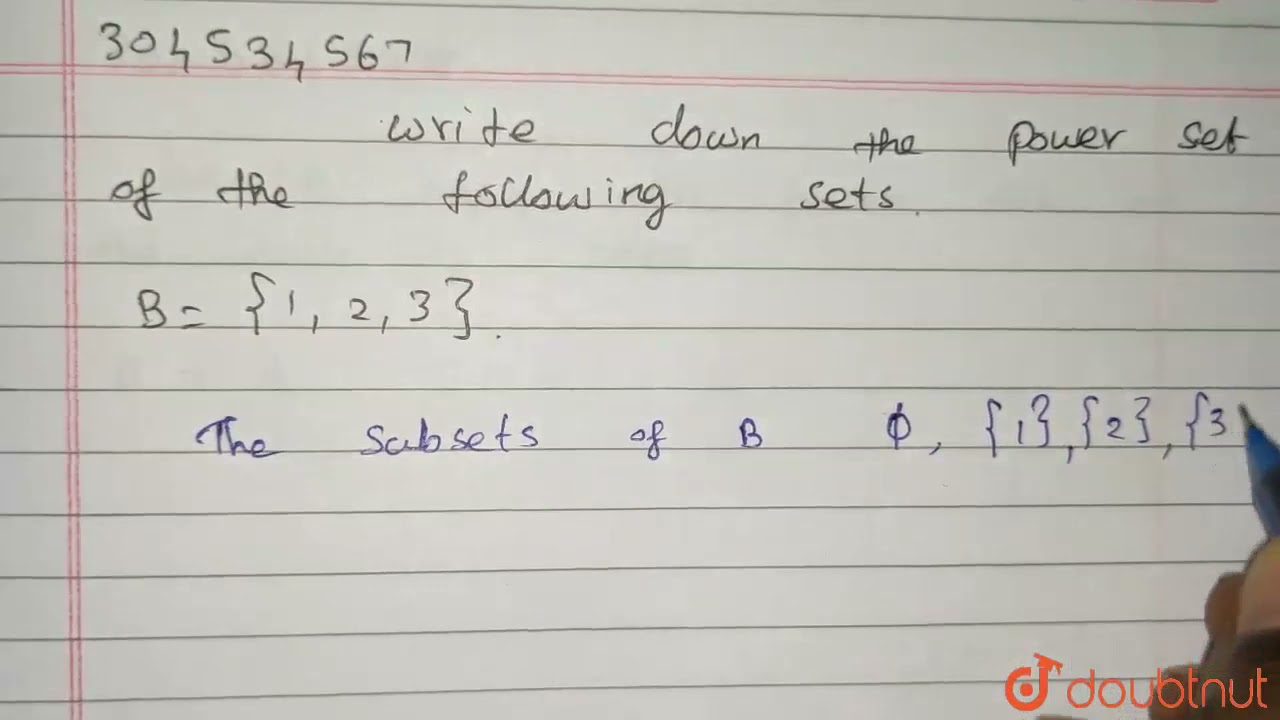 304534567
write down the power set
of the following sets.
B = {1, 2, 3}.
The subsets of B ϕ, {1}, {2}, {3
doubtnut